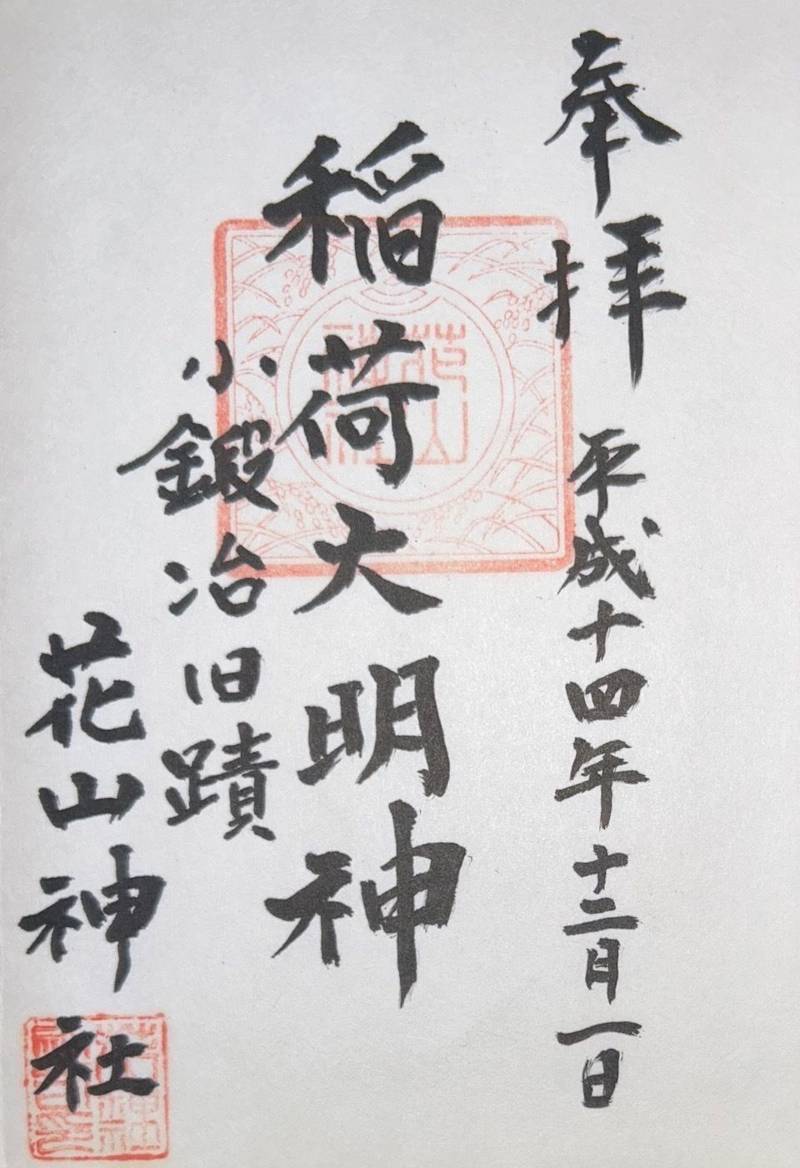 奉拝
平成十四年十二月一日
稲荷大明神
小鍛冶旧蹟
花山神社